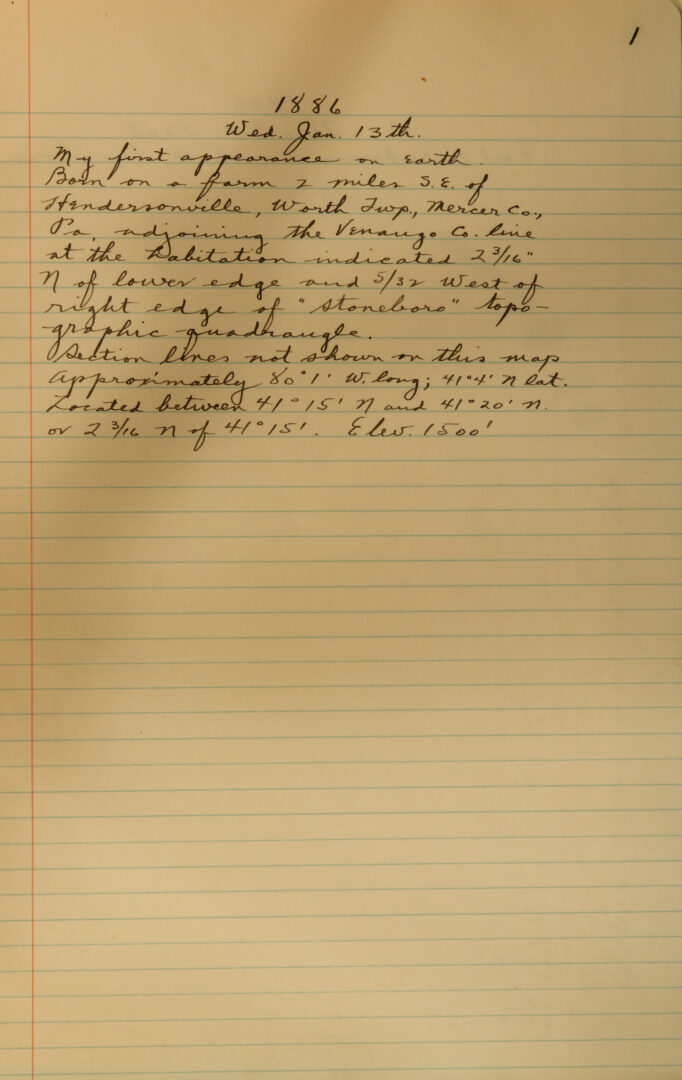 1
1886
Wed. Jan. 13th.
My first appearance on earth.
Born on a farm 2 miles S.E. of
Hendersonville, Worth Twp, Mercer Co.,
Pa, adjoining the Venango Co. line
at the habitation indicated 2 3/16"
N of lower edge and 5/32 West of
right edge of "Stoneboro" topo-
-graphic quadrangle.
Section lines not shown on this map
Approximately 80°1' W. long; 41°4' N lat.
Located between 41°15' N and 41°20' N.
or 2 3/16 N of 41°15'. Elev. 1500'